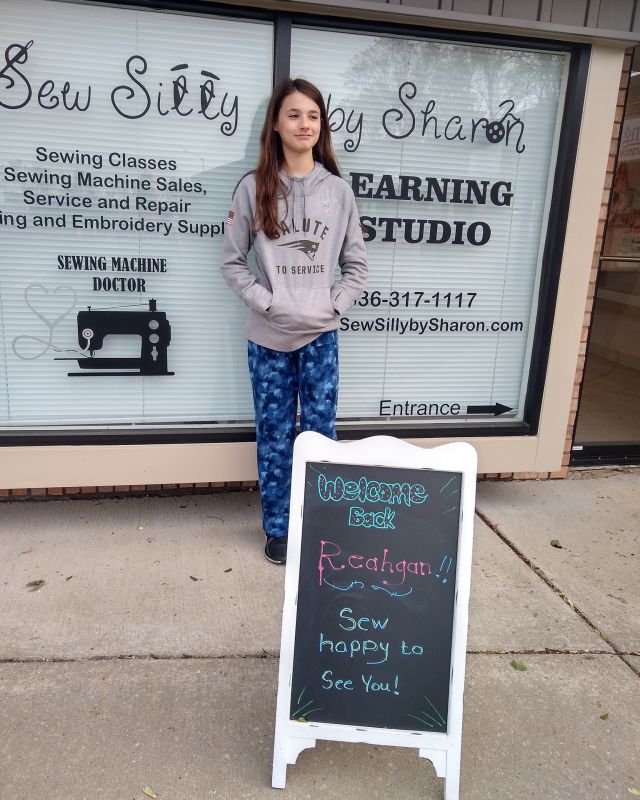 Sew Silly by Sharon
Sewing Classes
Sewing Machine Sales,
Service and Repair
ing and Embroidery Suppl
SEWING MACHINE
DOCTOR
EARNING
STUDIO
36-317-1117
SewSillybySharon.com
Entrace
ALUTE
TO SERVICE
Welcome
Back
Reahgan!!
Sew
happy to
See You!